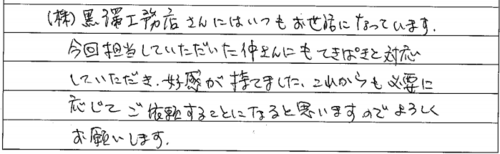 (株)黒澤工務店さんにはいつもお世話になっています.
今回担当していただいた仲さんにもてきぱきと対応
していただき、好感が持てました、これからも必要に
応じてご依頼することになると思いますのでよろしく
お願いします.